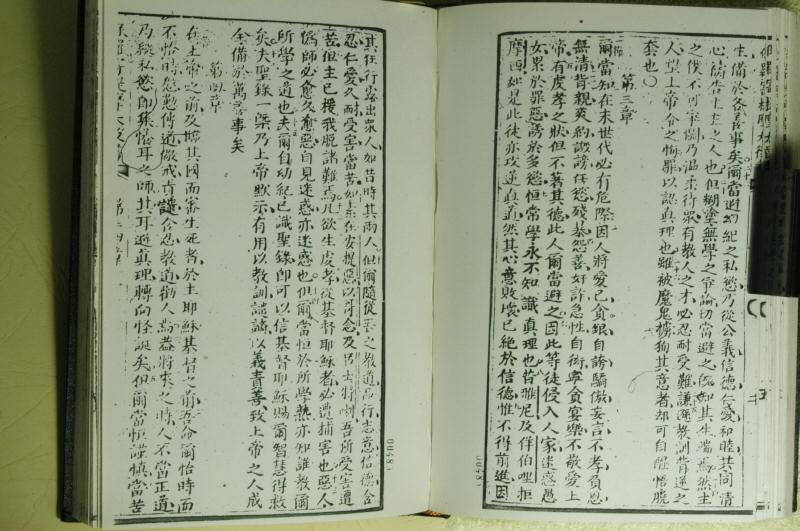 生備於各善事矣爾當避幼紀之私慾乃從公義信德仁愛和睦共同清
心籲告上主之人也但糊塗無學之爭論切當避之知其生端焉然主
之僕不可爭鬪乃溫柔待眾有教人之才必忍耐受難謙遜教訓背逆之
人望上帝令之悔罪以認真理也雖被魔鬼擄狥其意者卻可自醒悟脫
套也
第三章
爾當知在末世代必有危際因人將愛己貪銀自誇驕傲妄言不孝負恩
無清背親爽約譭謗任慾殘暴怨善奸詐急性自衒寧貪宴樂不敬愛上
帝有虔孝之狀但不著其德此人爾當避之因此等徒侵入人家迷惑愚
女累於罪惡誘於多慾恒常學永不知識真理也昔 呢及佯伯哩拒
摩西如是此徒亦攻逆真道然其心意敗壞已絕於信德惟不得前進因
其狂行露出眾人如昔時其兩人但爾隨從吾之教道品行志意信德含
忍仁愛久耐受害當苦如 在安提惡以哥念及呂士特 吾所受害遭
苦但主已援我脫諸難焉凡欲生虔孝從基督耶穌者必遭捕害也惡人
偽師必愈久愈惡自見迷惑亦迷惑也但爾當恒於所學熟亦知誰教爾
所學之道也夫爾自幼紀已識聖錄即可以信基督耶穌賜爾智慧得救
矣夫聖錄一槩乃上帝默示有用以教訓譴 以義責善致上帝之人成
全備於萬善事矣
第四章
在上帝之前及 其國而審生死者於主耶穌基督之前吾命爾怡時而
不怡時怠懃傳道儆戒責 含忍教道勸人焉蓋將來之時人不當正道
乃縱私慾即集 耳之師其耳避真理轉向怪誕矣但爾當恒謹慎當苦
00487